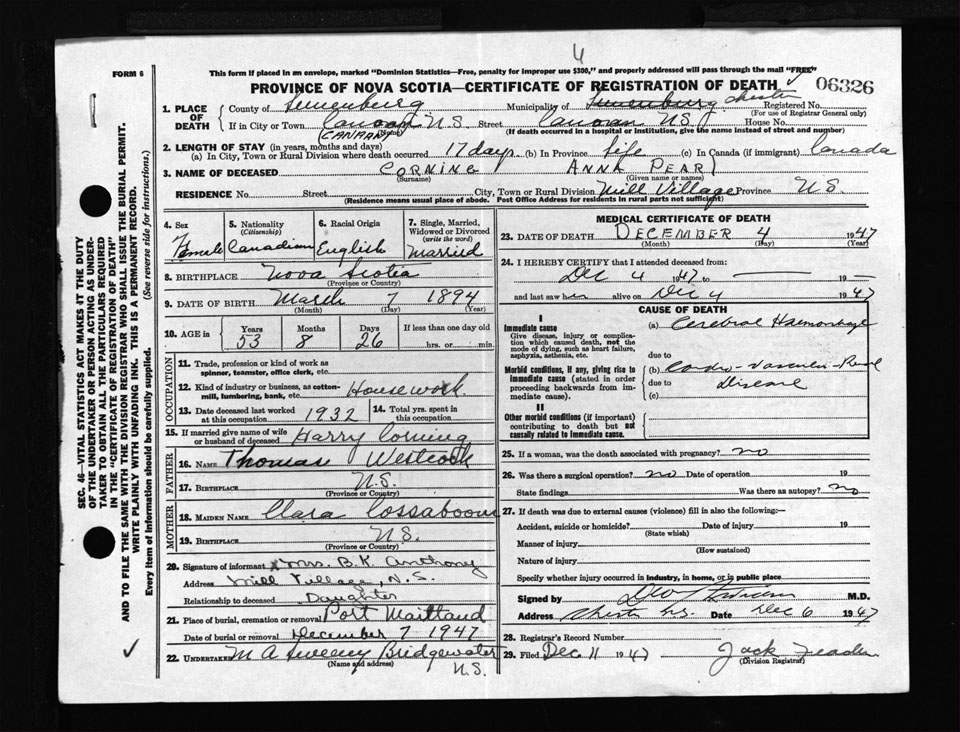 4
FORM 6
This form if placed in an envelope, marked "Dominion Statistics—Free, penalty for improper use $300," and properly addressed will pass through the mail "FREE"
PROVINCE OF NOVA SCOTIA—CERTIFICATE OF REGISTRATION OF DEATH
06326
1. PLACE OF DEATH
County of Lunenburg Municipality of Lunenburg Chester Registered No.
(For use of Registrar General only)
If in City or Town Canaan N.S. Street Canaan N.S. House No.
(CANAAN) (Name) (If death occurred in a hospital or institution, give the name instead of street and number)
2. LENGTH OF STAY (in years, months and days)
(a) In City, Town or Rural Division where death occurred 17 days (b) In Province life (c) In Canada (if immigrant) Canada
3. NAME OF DECEASED CORNING ANNA PEARL
(Surname) (Given name or names)
RESIDENCE No. Street City, Town or Rural Division Mill Village Province N.S.
(Residence means usual place of abode. Post Office Address for residents in rural parts not sufficient)
4. Sex Female
5. Nationality (Citizenship) Canadian
6. Racial Origin English
7. Single, Married, Widowed or Divorced (write the word) Married
8. BIRTHPLACE Nova Scotia
(Province or Country)
9. DATE OF BIRTH March 7 1894
(Month) (Day) (Year)
10. AGE in Years Months Days If less than one day old
53 8 26 hrs. or min.
OCCUPATION
11. Trade, profession or kind of work as spinner, teamster, office clerk, etc.
12. Kind of industry or business, as cotton-mill, lumbering, bank, etc. Housework
13. Date deceased last worked at this occupation 1932 14. Total yrs. spent in this occupation
15. If married give name of wife or husband of deceased Harry Corning
FATHER
16. NAME Thomas Westcock
17. BIRTHPLACE N.S.
(Province or Country)
MOTHER
18. MAIDEN NAME Clara Cossaboom
19. BIRTHPLACE N.S.
(Province or Country)
20. Signature of informant x Mrs. B. K. Anthony
Address Mill Village, N.S.
Relationship to deceased Daughter
21. Place of burial, cremation or removal Port Maitland
Date of burial or removal December 7 1947
22. UNDERTAKER M A Sweeny Bridgewater
(Name and address) N.S.
MEDICAL CERTIFICATE OF DEATH
23. DATE OF DEATH DECEMBER 4 1947
(Month) (Day) (Year)
24. I HEREBY CERTIFY that I attended deceased from:
Dec 4 1947 to — 19 —
and last saw her alive on Dec 4 1947
CAUSE OF DEATH
I
Immediate cause
Give disease, injury or complication which caused death, not the mode of dying, such as heart failure, asphyxia, asthenia, etc.
(a) Cerebral Haemorrhage
due to
Morbid conditions, if any, giving rise to immediate cause (stated in order proceeding backwards from immediate cause).
(b) Cardio-Vascular-Renal
due to disease
(c)
II
Other morbid conditions (if important) contributing to death but not causally related to immediate cause.
25. If a woman, was the death associated with pregnancy? no
26. Was there a surgical operation? no Date of operation 19
State findings Was there an autopsy? no
27. If death was due to external causes (violence) fill in also the following:—
Accident, suicide or homicide? Date of injury 19
(State which)
Manner of injury
(How sustained)
Nature of injury
Specify whether injury occurred in industry, in home, or in public place
Signed by M.D.
Address Chester N.S. Date Dec 6 1947
28. Registrar's Record Number
29. Filed Dec 11 1947 Jack
(Division Registrar)
SEC. 46—VITAL STATISTICS ACT MAKES IT THE DUTY
OF THE UNDERTAKER OR PERSON ACTING AS UNDER-
TAKER TO OBTAIN ALL THE PARTICULARS REQUIRED
IN THE "CERTIFICATE OF REGISTRATION OF DEATH"
AND TO FILE THE SAME WITH THE DIVISION REGISTRAR WHO SHALL ISSUE THE BURIAL PERMIT.
WRITE PLAINLY WITH UNFADING INK. THIS IS A PERMANENT RECORD.
Every item of information should be carefully supplied. (See reverse side for instructions.)